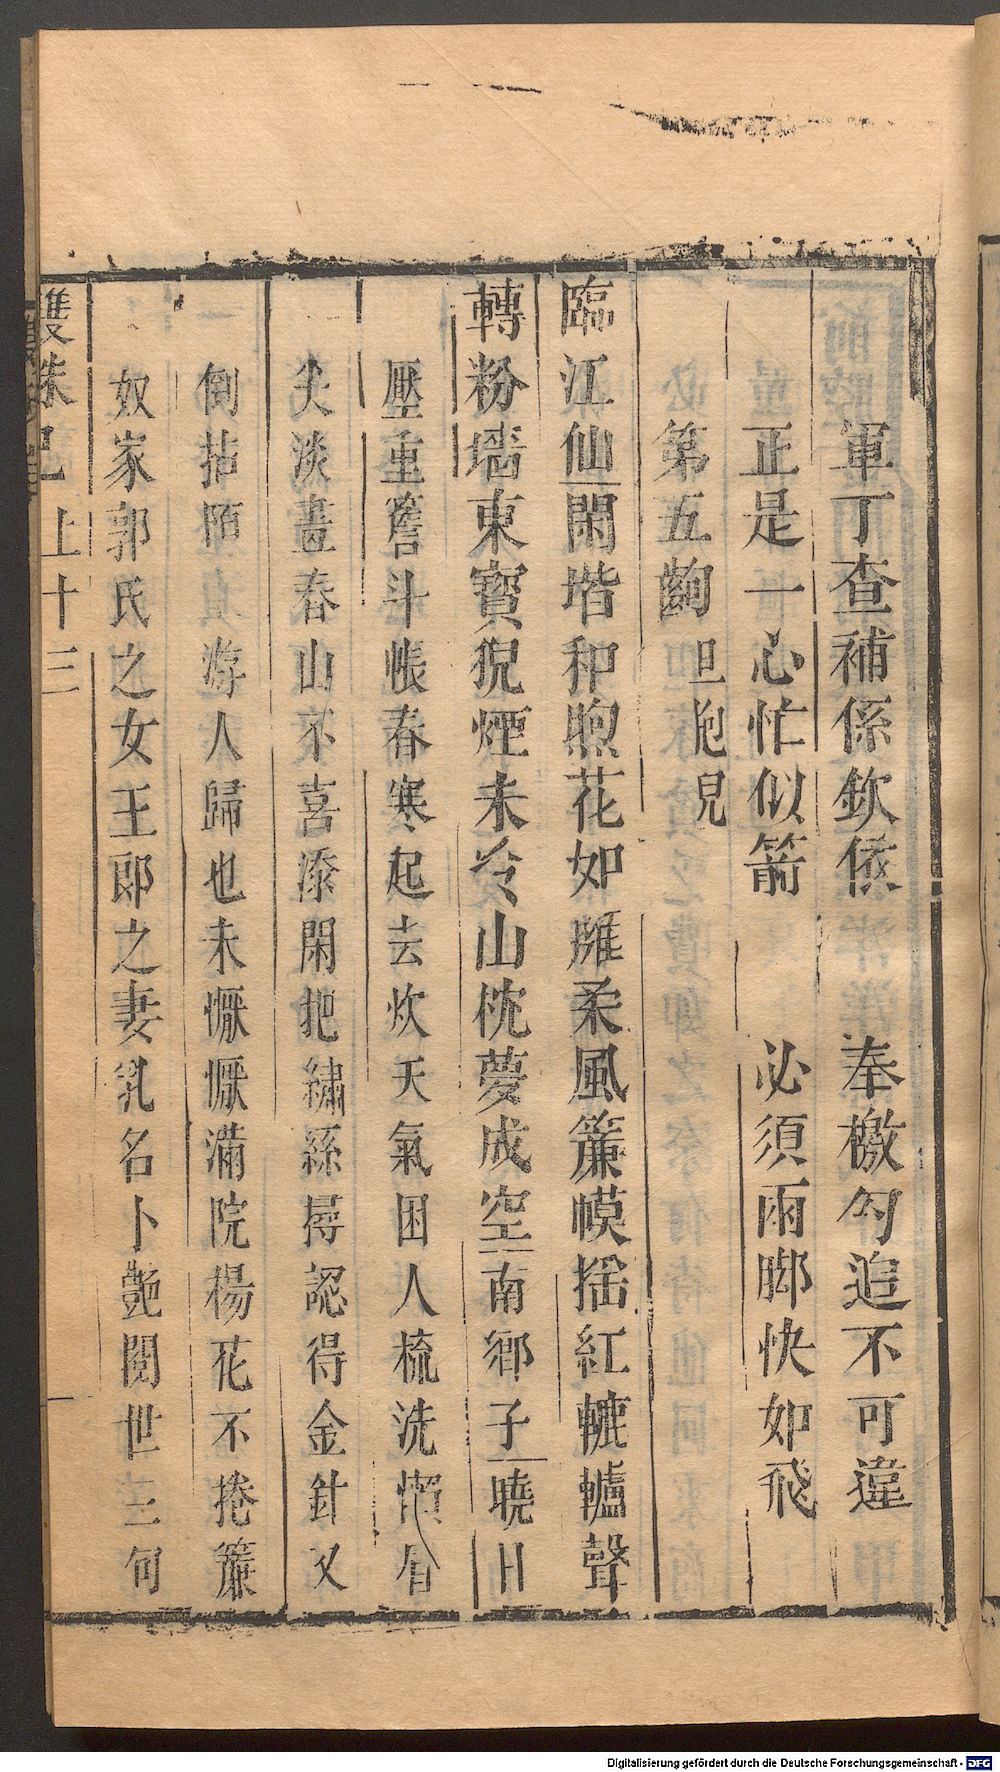 軍丁查補係欽依　奉檄勾追不可違
正是一心忙似箭　必須雨脚快如飛
第五齣　旦抱兒
臨江仙閑堦和煦花如雕柔風簾幙搖紅轆轤聲
轉粉墻東寳猊煙未冷山枕夢成空南鄉子曉日
壓重簷斗帳春寒起去炊天氣困人梳洗懶眉
尖淡畫春山不喜添閑把繡絲撏認得金針又
倒拈陌　游人歸也未懨懨滿院楊花不捲簾
奴家郭氏之女王郎之妻乳名卜艶閱世三旬
雙珠記　上十三
Digitalisierung gefördert durch die Deutsche Forschungsgemeinschaft - DFG